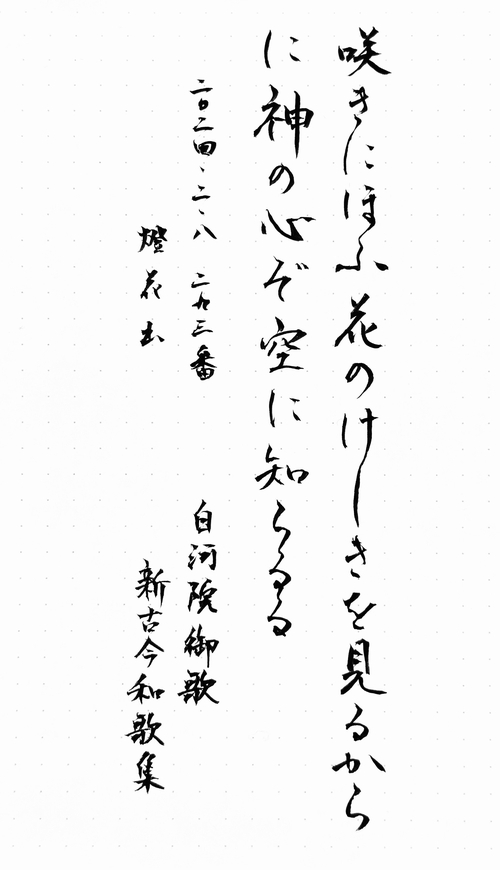 咲きにほふ花のけしきを見るから
に神の心ぞ空に知らるる
二〇二四、二、八 二九三番
燈花出
白河院御歌
新古今和歌集